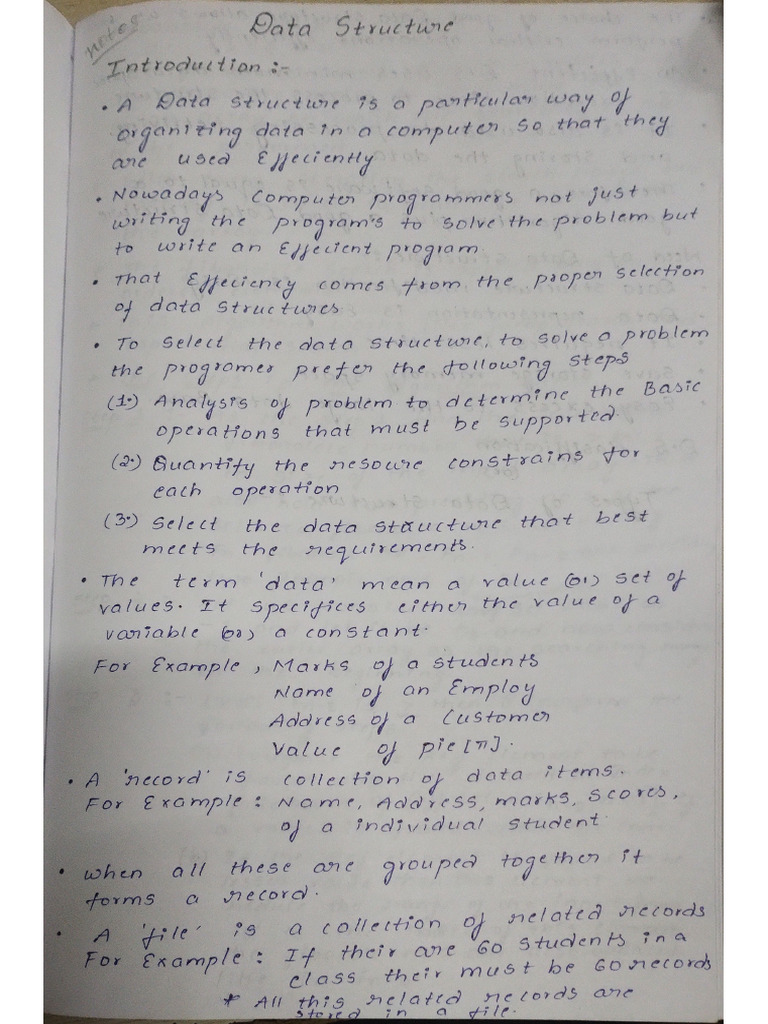 notes
Data Structure
Introduction :-
• A Data structure is a particular way of
organizing data in a computer so that they
are used Effeciently
• Nowadays computer programmers not just
writing the program's to solve the problem but
to write an Effecient program.
• That Effeciency comes from the proper selection
of data structures.
• To select the data structure, to solve a problem
the programer prefer the following steps
(1.) Analysis of problem to determine the Basic
operations that must be supported.
(2.) Quantify the resoure constrains for
each operation
(3.) select the data structure that best
meets the requirements.
• The term 'data' mean a value (or) set of
values. It specifices either the value of a
variable (or) a constant.
For Example, Marks of a students
Name of an Employ
Address of a Customer
Value of pie [π].
• A 'record' is collection of data items.
For Example : Name, Address, marks, scores,
of a individual student.
• when all these are grouped together it
forms a record.
• A 'file' is a collection of related records
For Example : If their are 60 students in a
class their must be 60 records
* All this related records are
stored in a file.